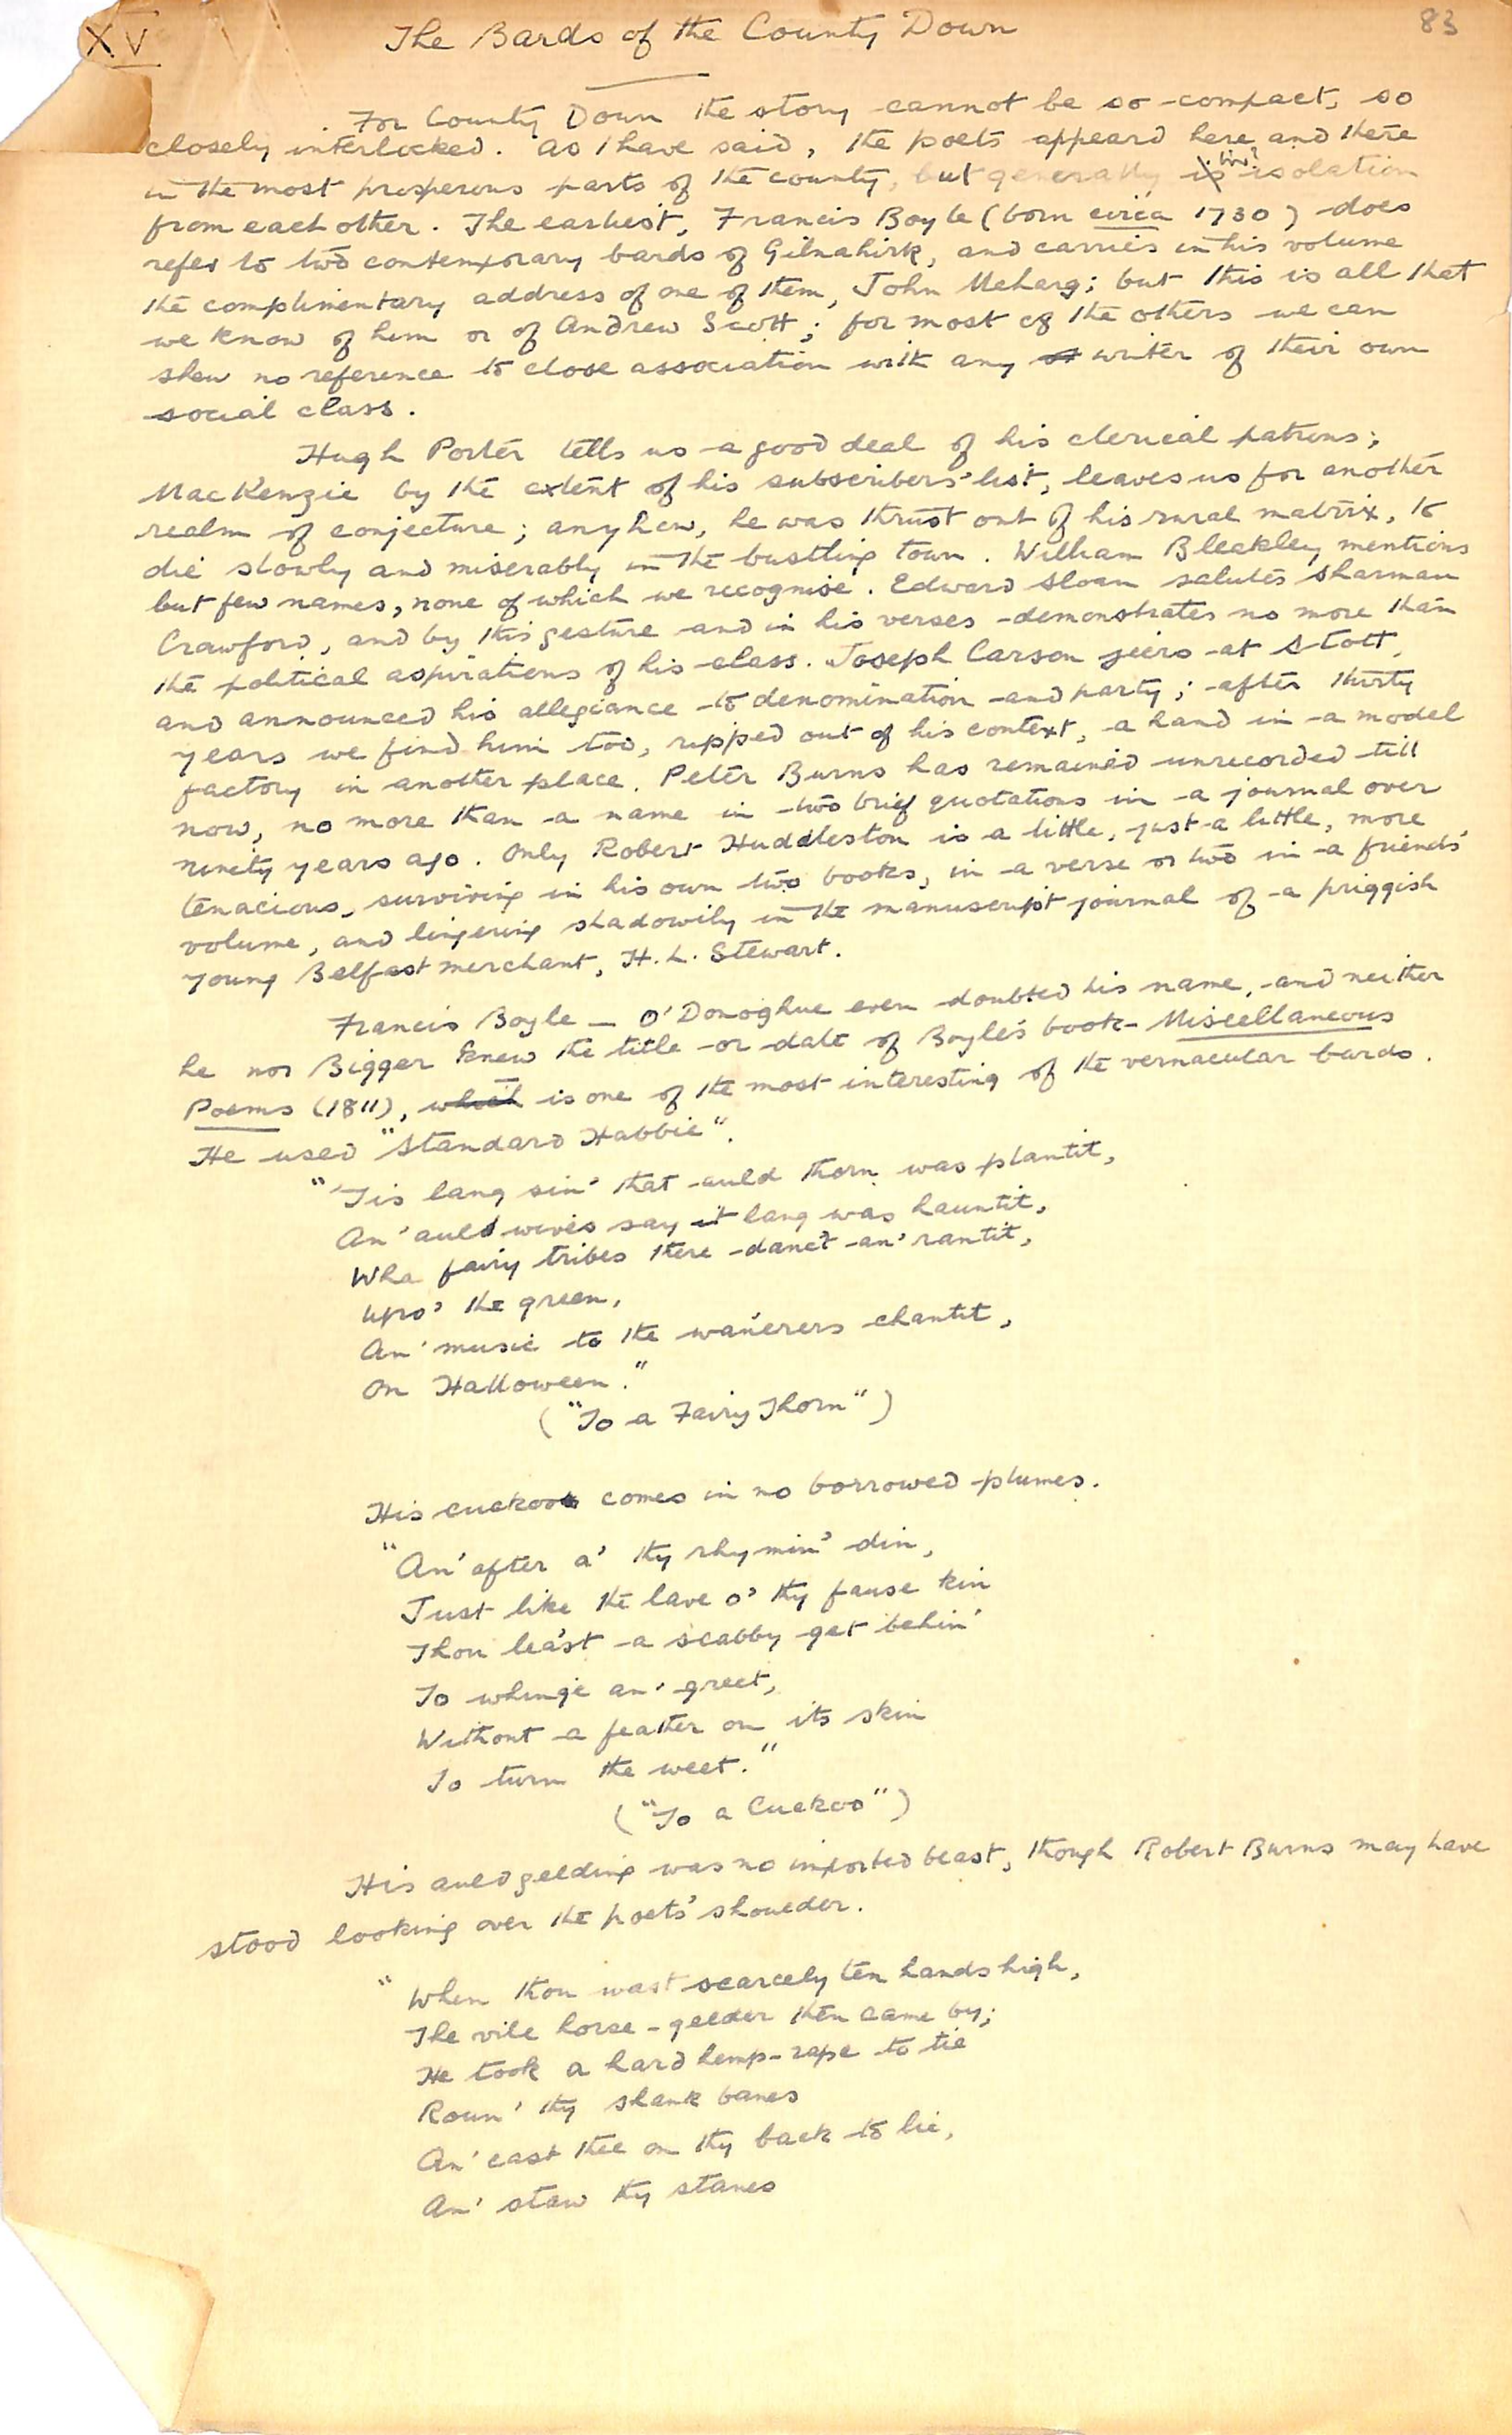 XV
The Bards of the County Down
83
For County Down the story cannot be so compact, so
closely interlocked. As I have said, the poets appeard here and there
in the most prosperous parts of the county, but generally is isolation
from each other. The earliest, Francis Boyle (born circa 1730) does
refer to two contemporary bards of Gilnahirk, and carries in his volume
the complimentary address of one of them, John Meharg; but this is all that
we know of him or of Andrew Scott; for most of the others we can
shew no reference to close association with any writer of their own
social class.
Hugh Porter tells us a good deal of his clerical patrons;
MacKenzie by the extent of his subscribers' list, leaves us for another
realm of conjecture; anyhow, he was thrust out of his rural matrix, to
die slowly and miserably in the bustling town. William Bleakley mentions
but few names, none of which we recognise. Edward Sloan salutes Sharman
Crawford, and by this gesture and in his verses demonstrates no more than
the political aspirations of his class. Joseph Carson jeers at Stott,
and announced his allegiance to denomination and party; after thirty
years we find him too, ripped out of his context, a hand in a model
factory in another place. Peter Burns has remained unrecorded till
now, no more than a name in two brief quotations in a journal over
ninety years ago. Only Robert Huddleston is a little, just a little, more
tenacious, surviving in his own two books, in a verse or two in a friend's
volume, and lingering shadowily in the manuscript journal of a priggish
young Belfast merchant, H. L. Stewart.
Francis Boyle — O'Donoghue even doubted his name, and neither
he nor Bigger knew the title or date of Boyle's book - Miscellaneous
Poems (1811), which is one of the most interesting of the vernacular bards.
He used "Standard Habbie".
"'Tis lang sin' that auld thorn was plantit,
An' auld wives say it lang was hauntit,
Wha fairy tribes there danc't an' rantit,
Upo' the green,
An' music to the wan'erers chantit,
On Halloween."
("To a Fairy Thorn")
His cuckoo comes in no borrowed plumes.
"An' after a' thy rhymin' din,
Just like the lave o' thy fause kin
Thou lea'st a scabby get behin'
To whinge an' greet,
Without a feather on its skin
To turn the weet."
("To a Cuckoo")
His auld gelding was no imported beast, though Robert Burns may have
stood looking over the poets' shoulder.
"When thou wast scarcely ten hands high,
The vile horse-gelder then came by;
He took a hard hemp-rape to tie
Roun' thy shank banes
An' cast thee on thy back to lie,
An' staw thy stanes